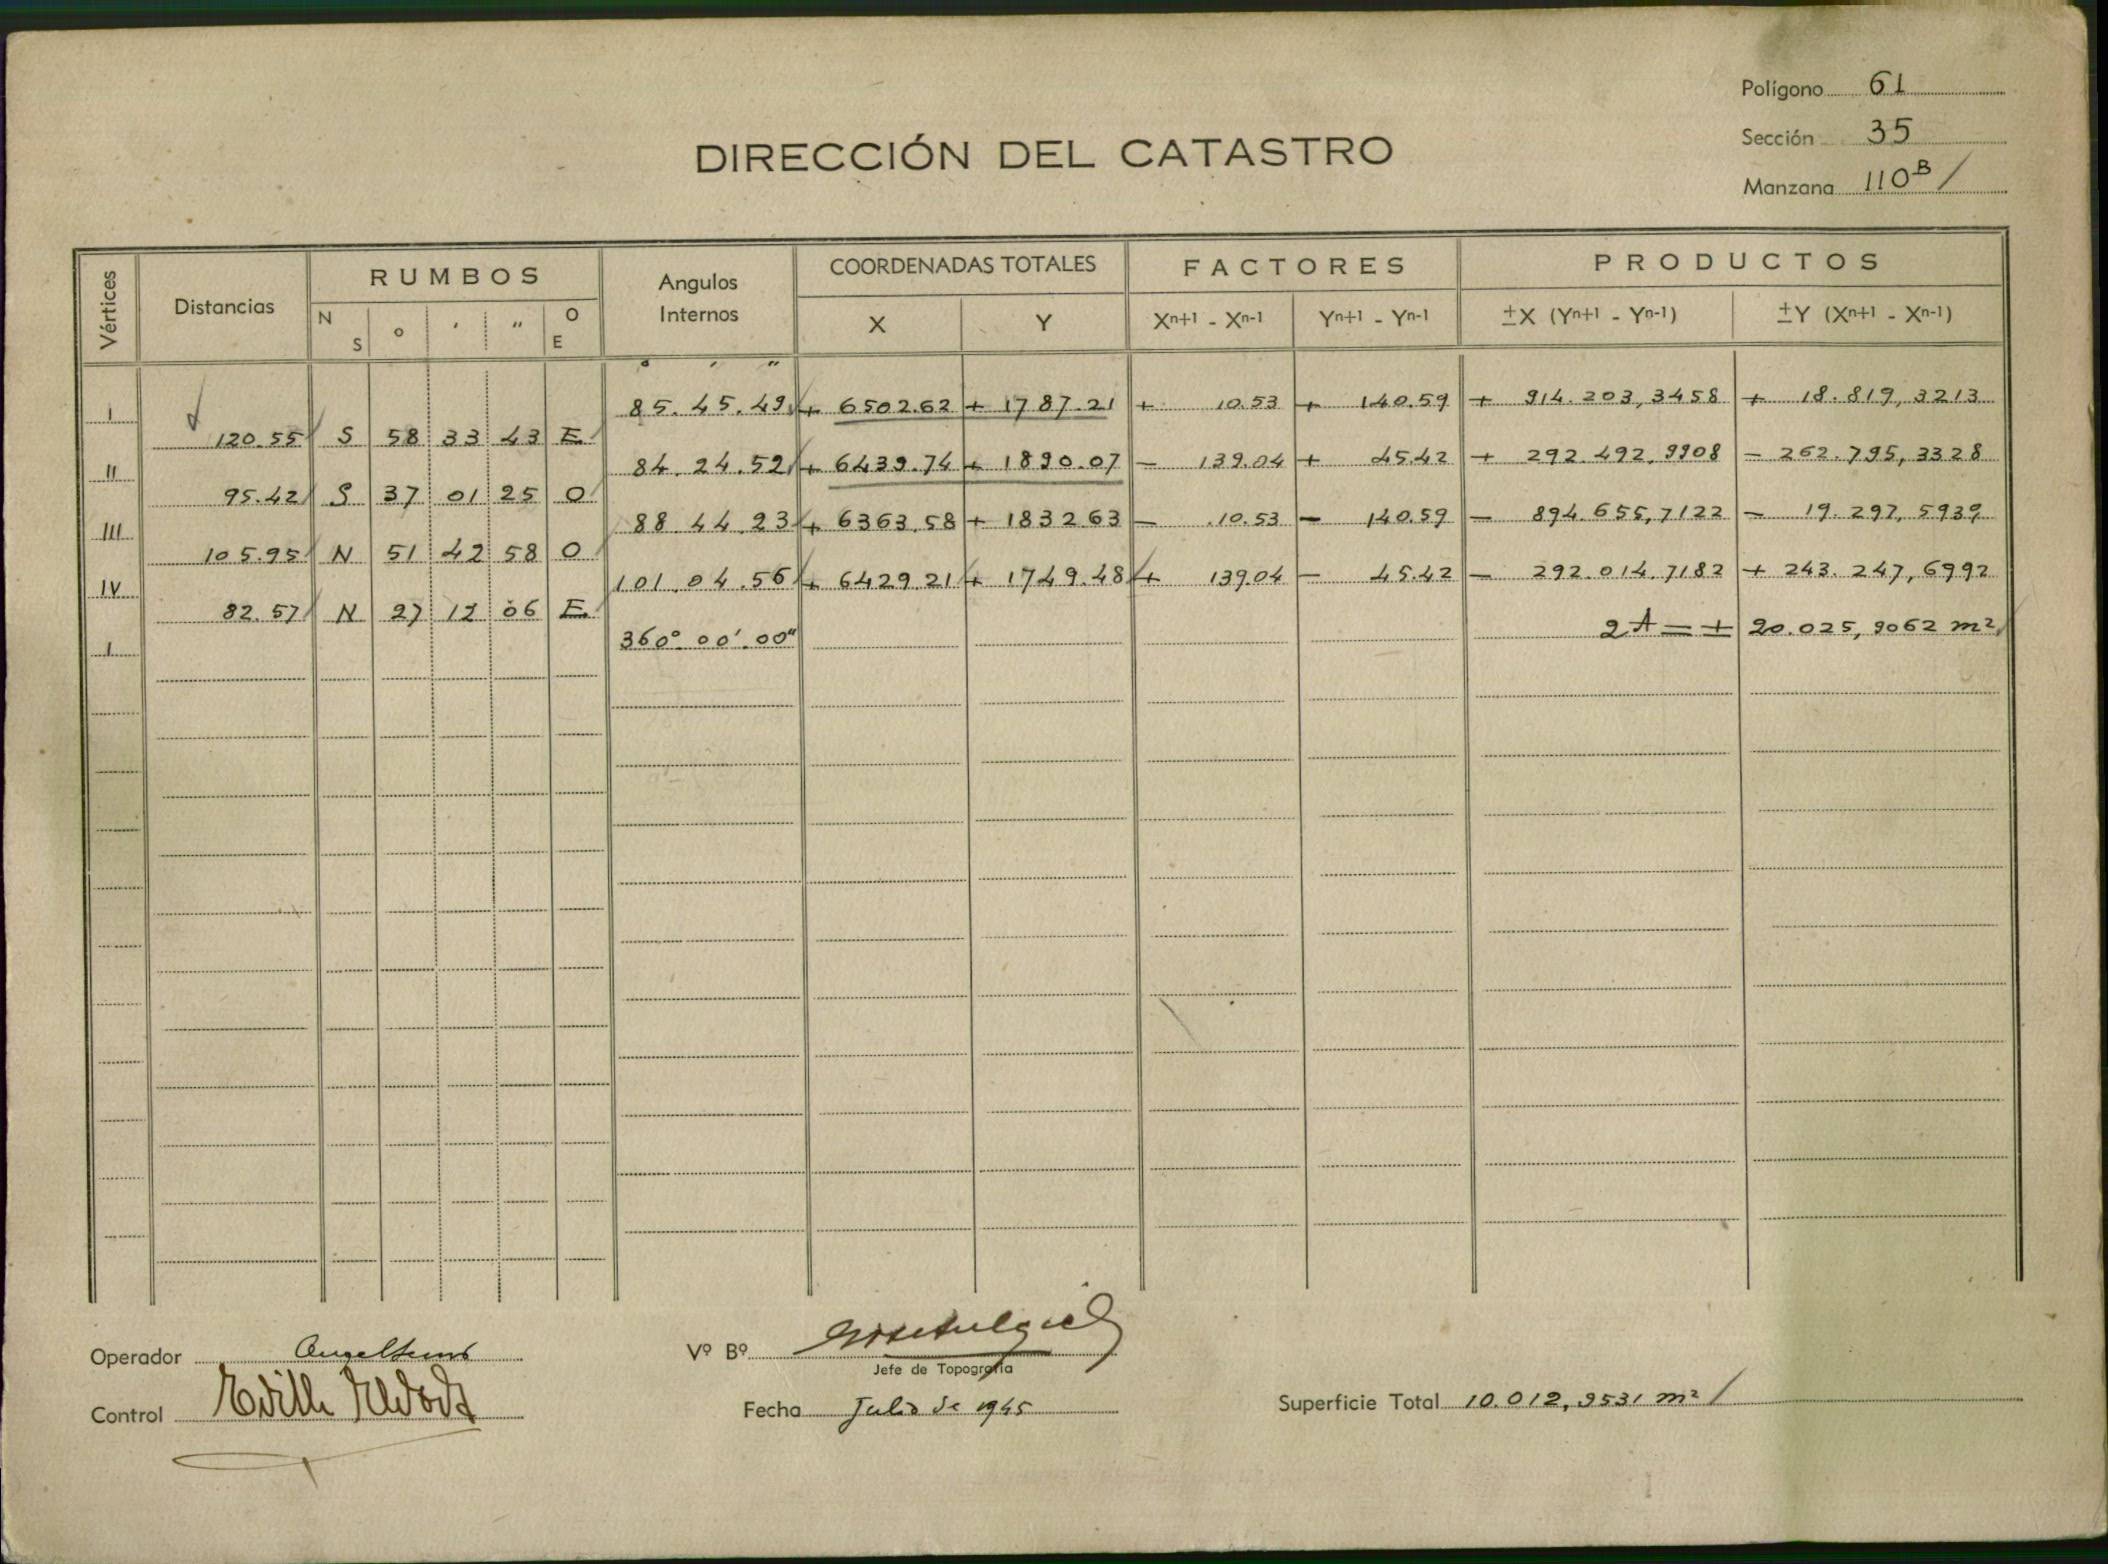 Polígono 61
Sección 35
Manzana 110ᴮ /
DIRECCIÓN DEL CATASTRO
Vértices Distancias RUMBOS Angulos Internos COORDENADAS TOTALES FACTORES PRODUCTOS
N S ° ' " O E X Y Xⁿ⁺¹ - Xⁿ⁻¹ Yⁿ⁺¹ - Yⁿ⁻¹ ±X (Yⁿ⁺¹ - Yⁿ⁻¹) ±Y (Xⁿ⁺¹ - Xⁿ⁻¹)
° ' "
I 85.45.49 + 6502.62 + 1787.21 + 10.53 + 140.59 + 914.203,3458 + 18.819,3213
120.55 S 58 33 43 E
II 84.24.52 + 6439.74 + 1890.07 - 139.04 + 45.42 + 292.492,9908 - 262.795,3328
95.42 S 37 01 25 O
III 88.44.23 + 6363.58 + 1832 63 - 10.53 - 140.59 - 894.655,7122 - 19.297,5939
105.95 N 51 42 58 O
IV 101.04.56 + 6429.21 + 1749.48 + 139.04 - 45.42 - 292.014,7182 + 243.247,6992
82.57 N 27 12 06 E
I 360°.00'.00" 2A = + 20.025,9062 m²
Operador
Vº Bº
Jefe de Topografía
Control
Fecha Julio de 1945
Superficie Total 10.012,9531 m² /